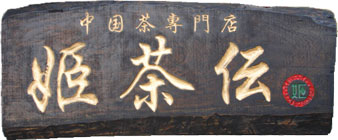 中国茶專門店
姫茶伝
姫